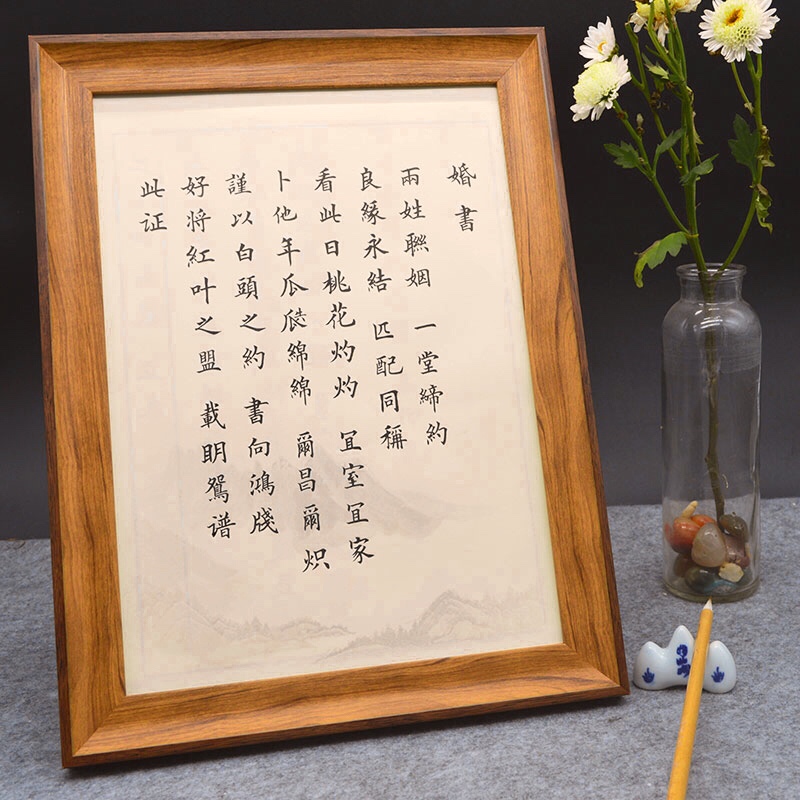 婚書
兩姓聯姻 一堂締約
良緣永結 匹配同稱
看此日桃花灼灼 宜室宜家
卜他年瓜瓞綿綿 爾昌爾炽
謹以白頭之約 書向鴻牋
好将紅叶之盟 載明鴛谱
此证